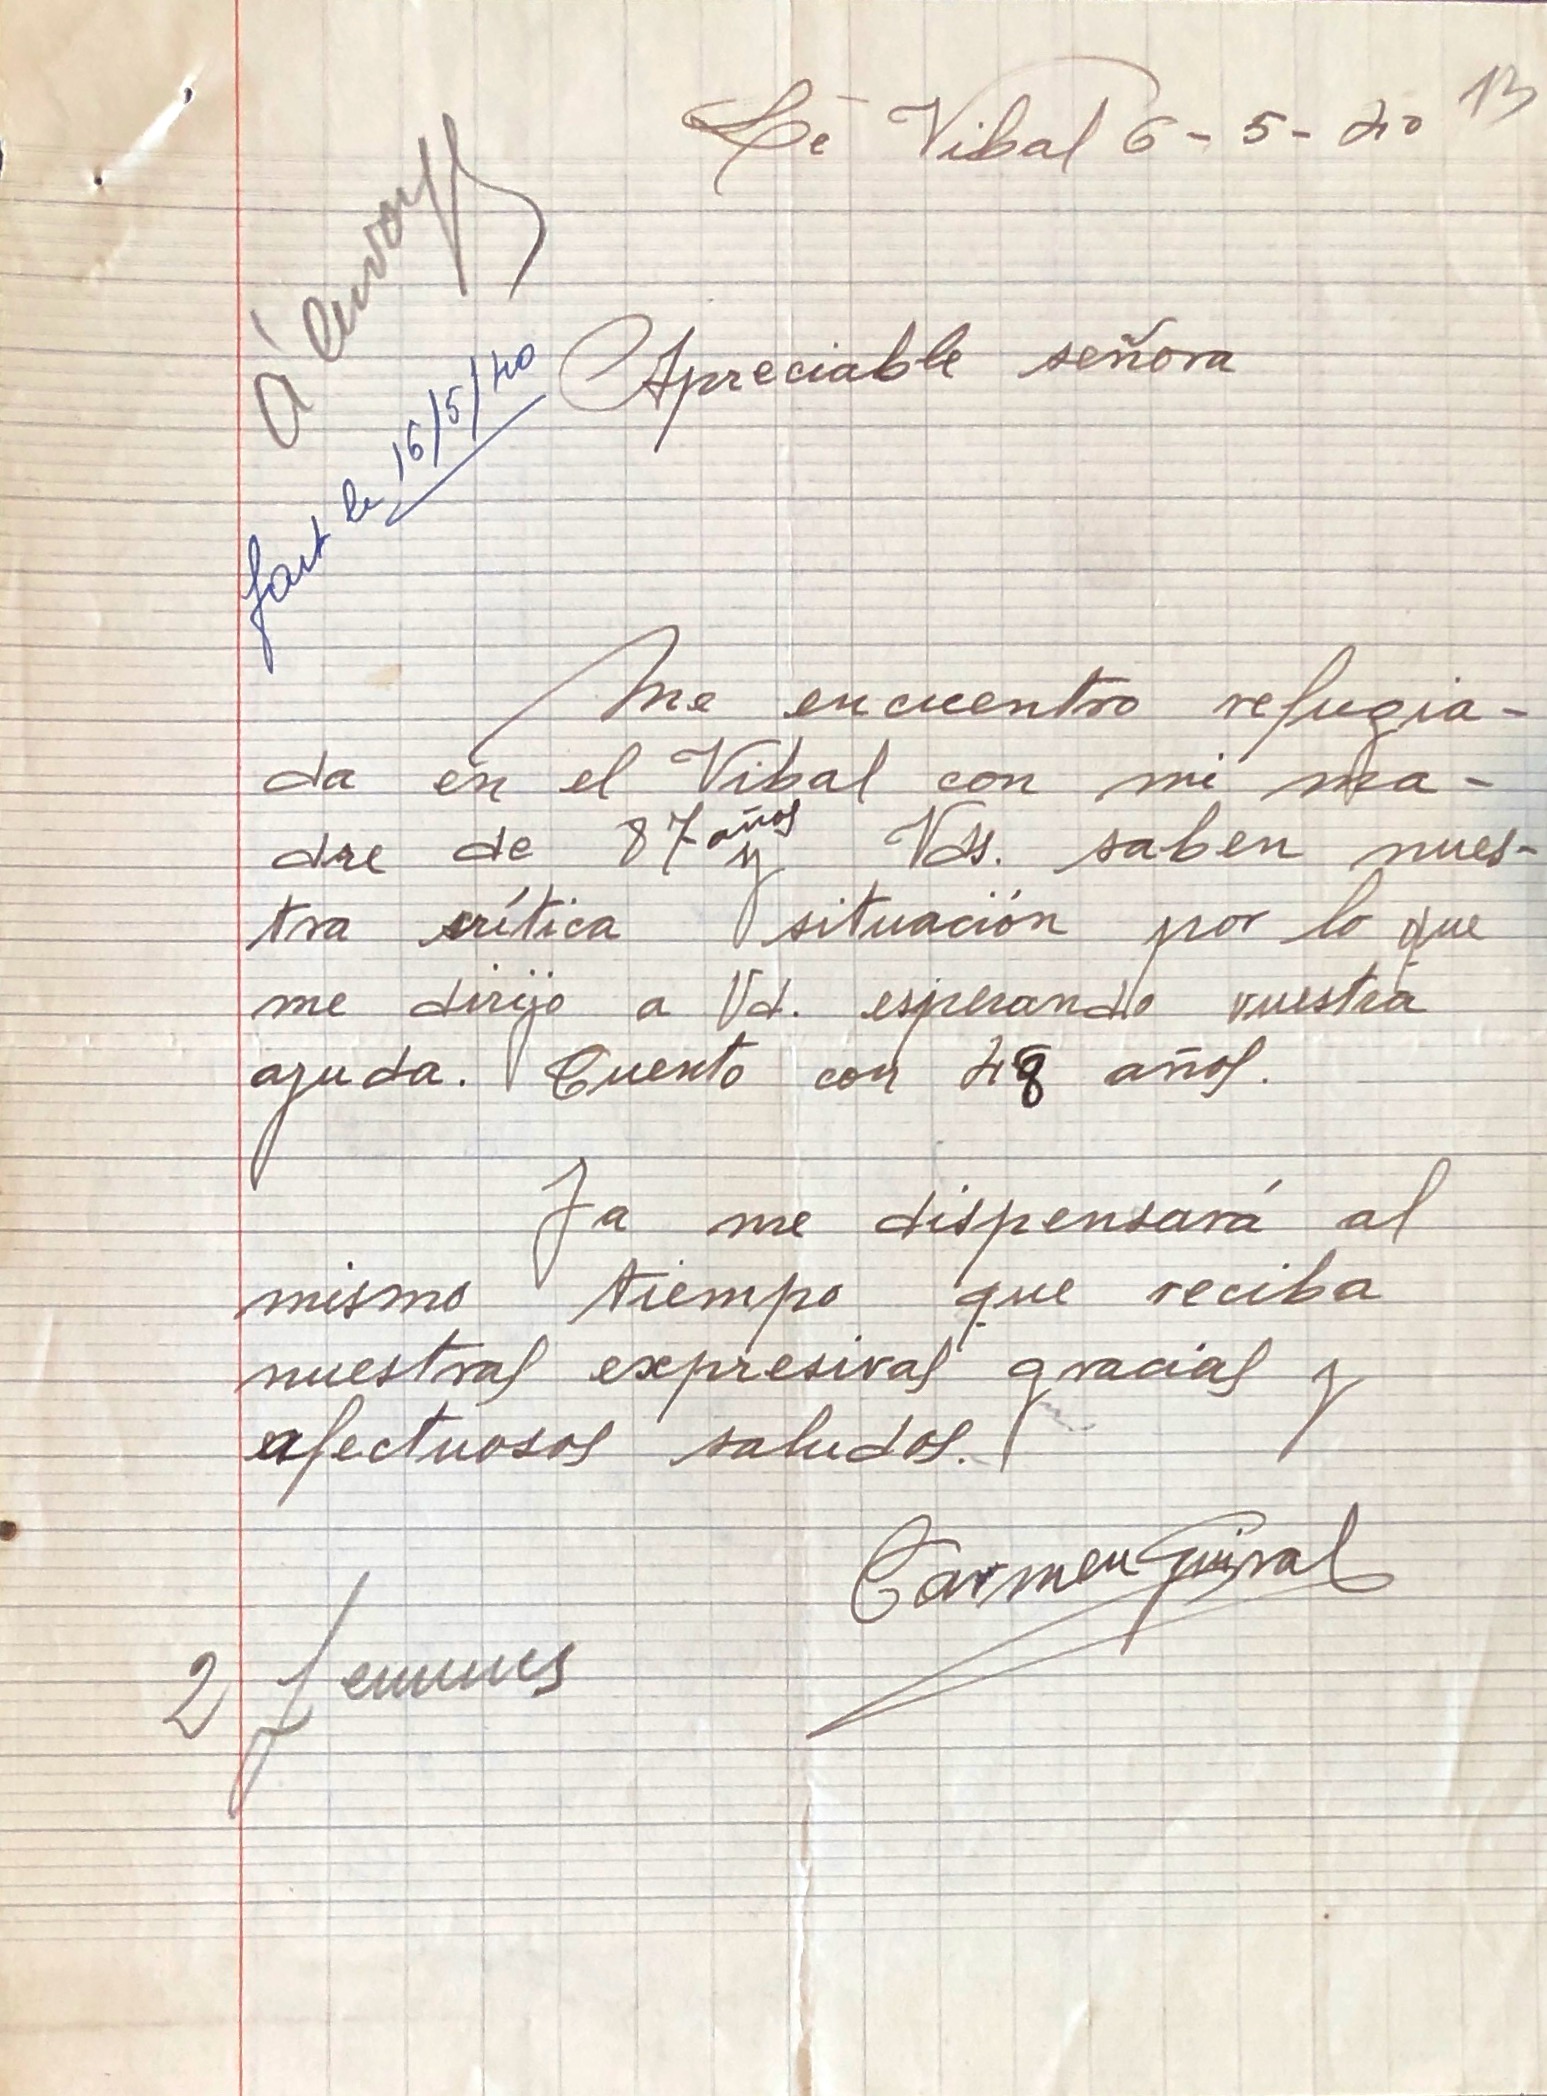 13
Le Vibal 6-5-40
á envoyer
fait le 15/5/40
Apreciable señora
Me encuentro refugia-
da en el Vibal con mi ma-
dre de 87 años y Vds. saben nues-
tra crítica situación por lo que
me dirijo a Vd. esperando vuestra
ayuda. Cuento con 48 años.
Ya me dispensará al
mismo tiempo que reciba
nuestras expresivas gracias y
afectuosos saludos.
Carmen Guiral
2 femmes